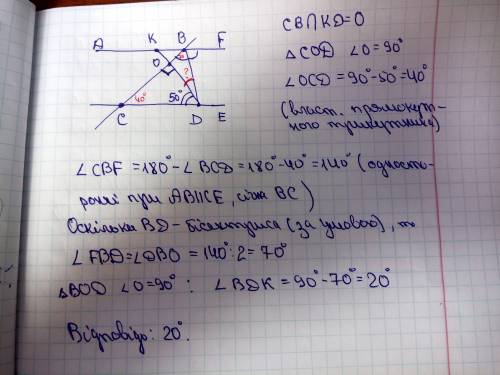 A K B F
O ?
40° 50°
C D E
CB∩KD=O
△COD ∠O=90°
∠OCD=90°-50°=40°
(власт. прямокут-
ного трикутника)
∠CBF =180°-∠BCD=180°-40°=140° (одност-
ронні при AB||CE, січн BC)
Оскільки BD-бісектриса (за умовою), то
∠FBD=∠DBO = 140°:2=70°
△BOD ∠O=90° : ∠BDK = 90°-70°=20°
Відповідь: 20°.